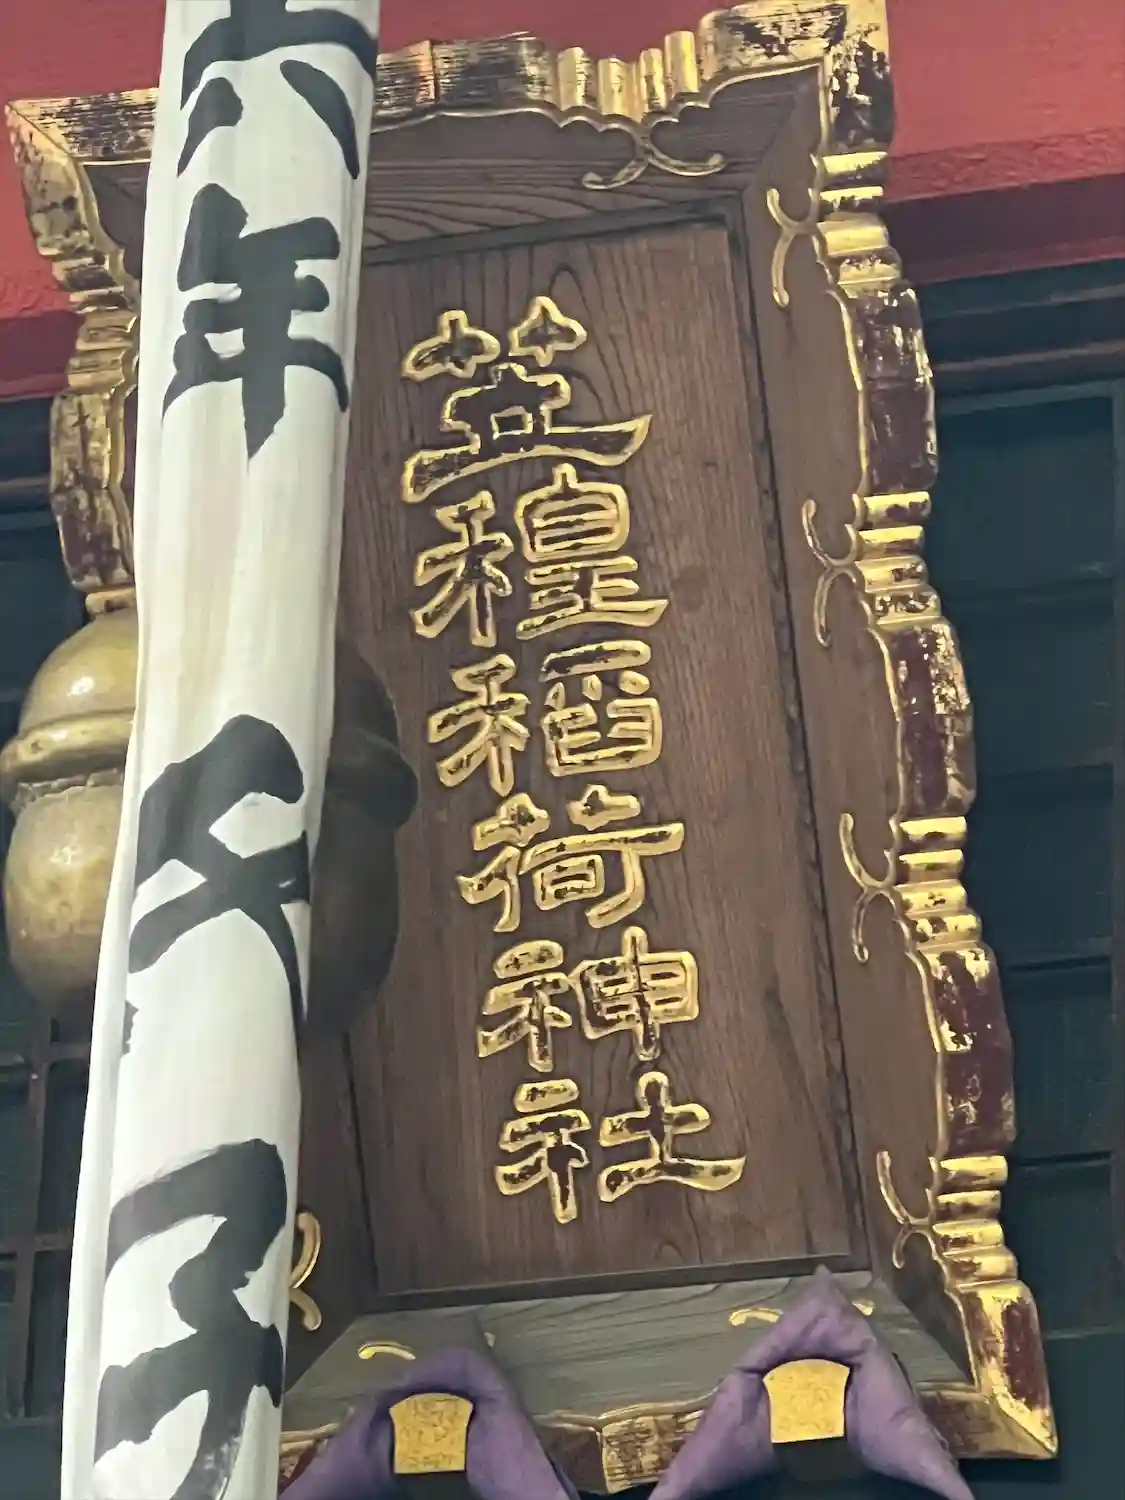 笠䅣稲荷神社
六年 氏子